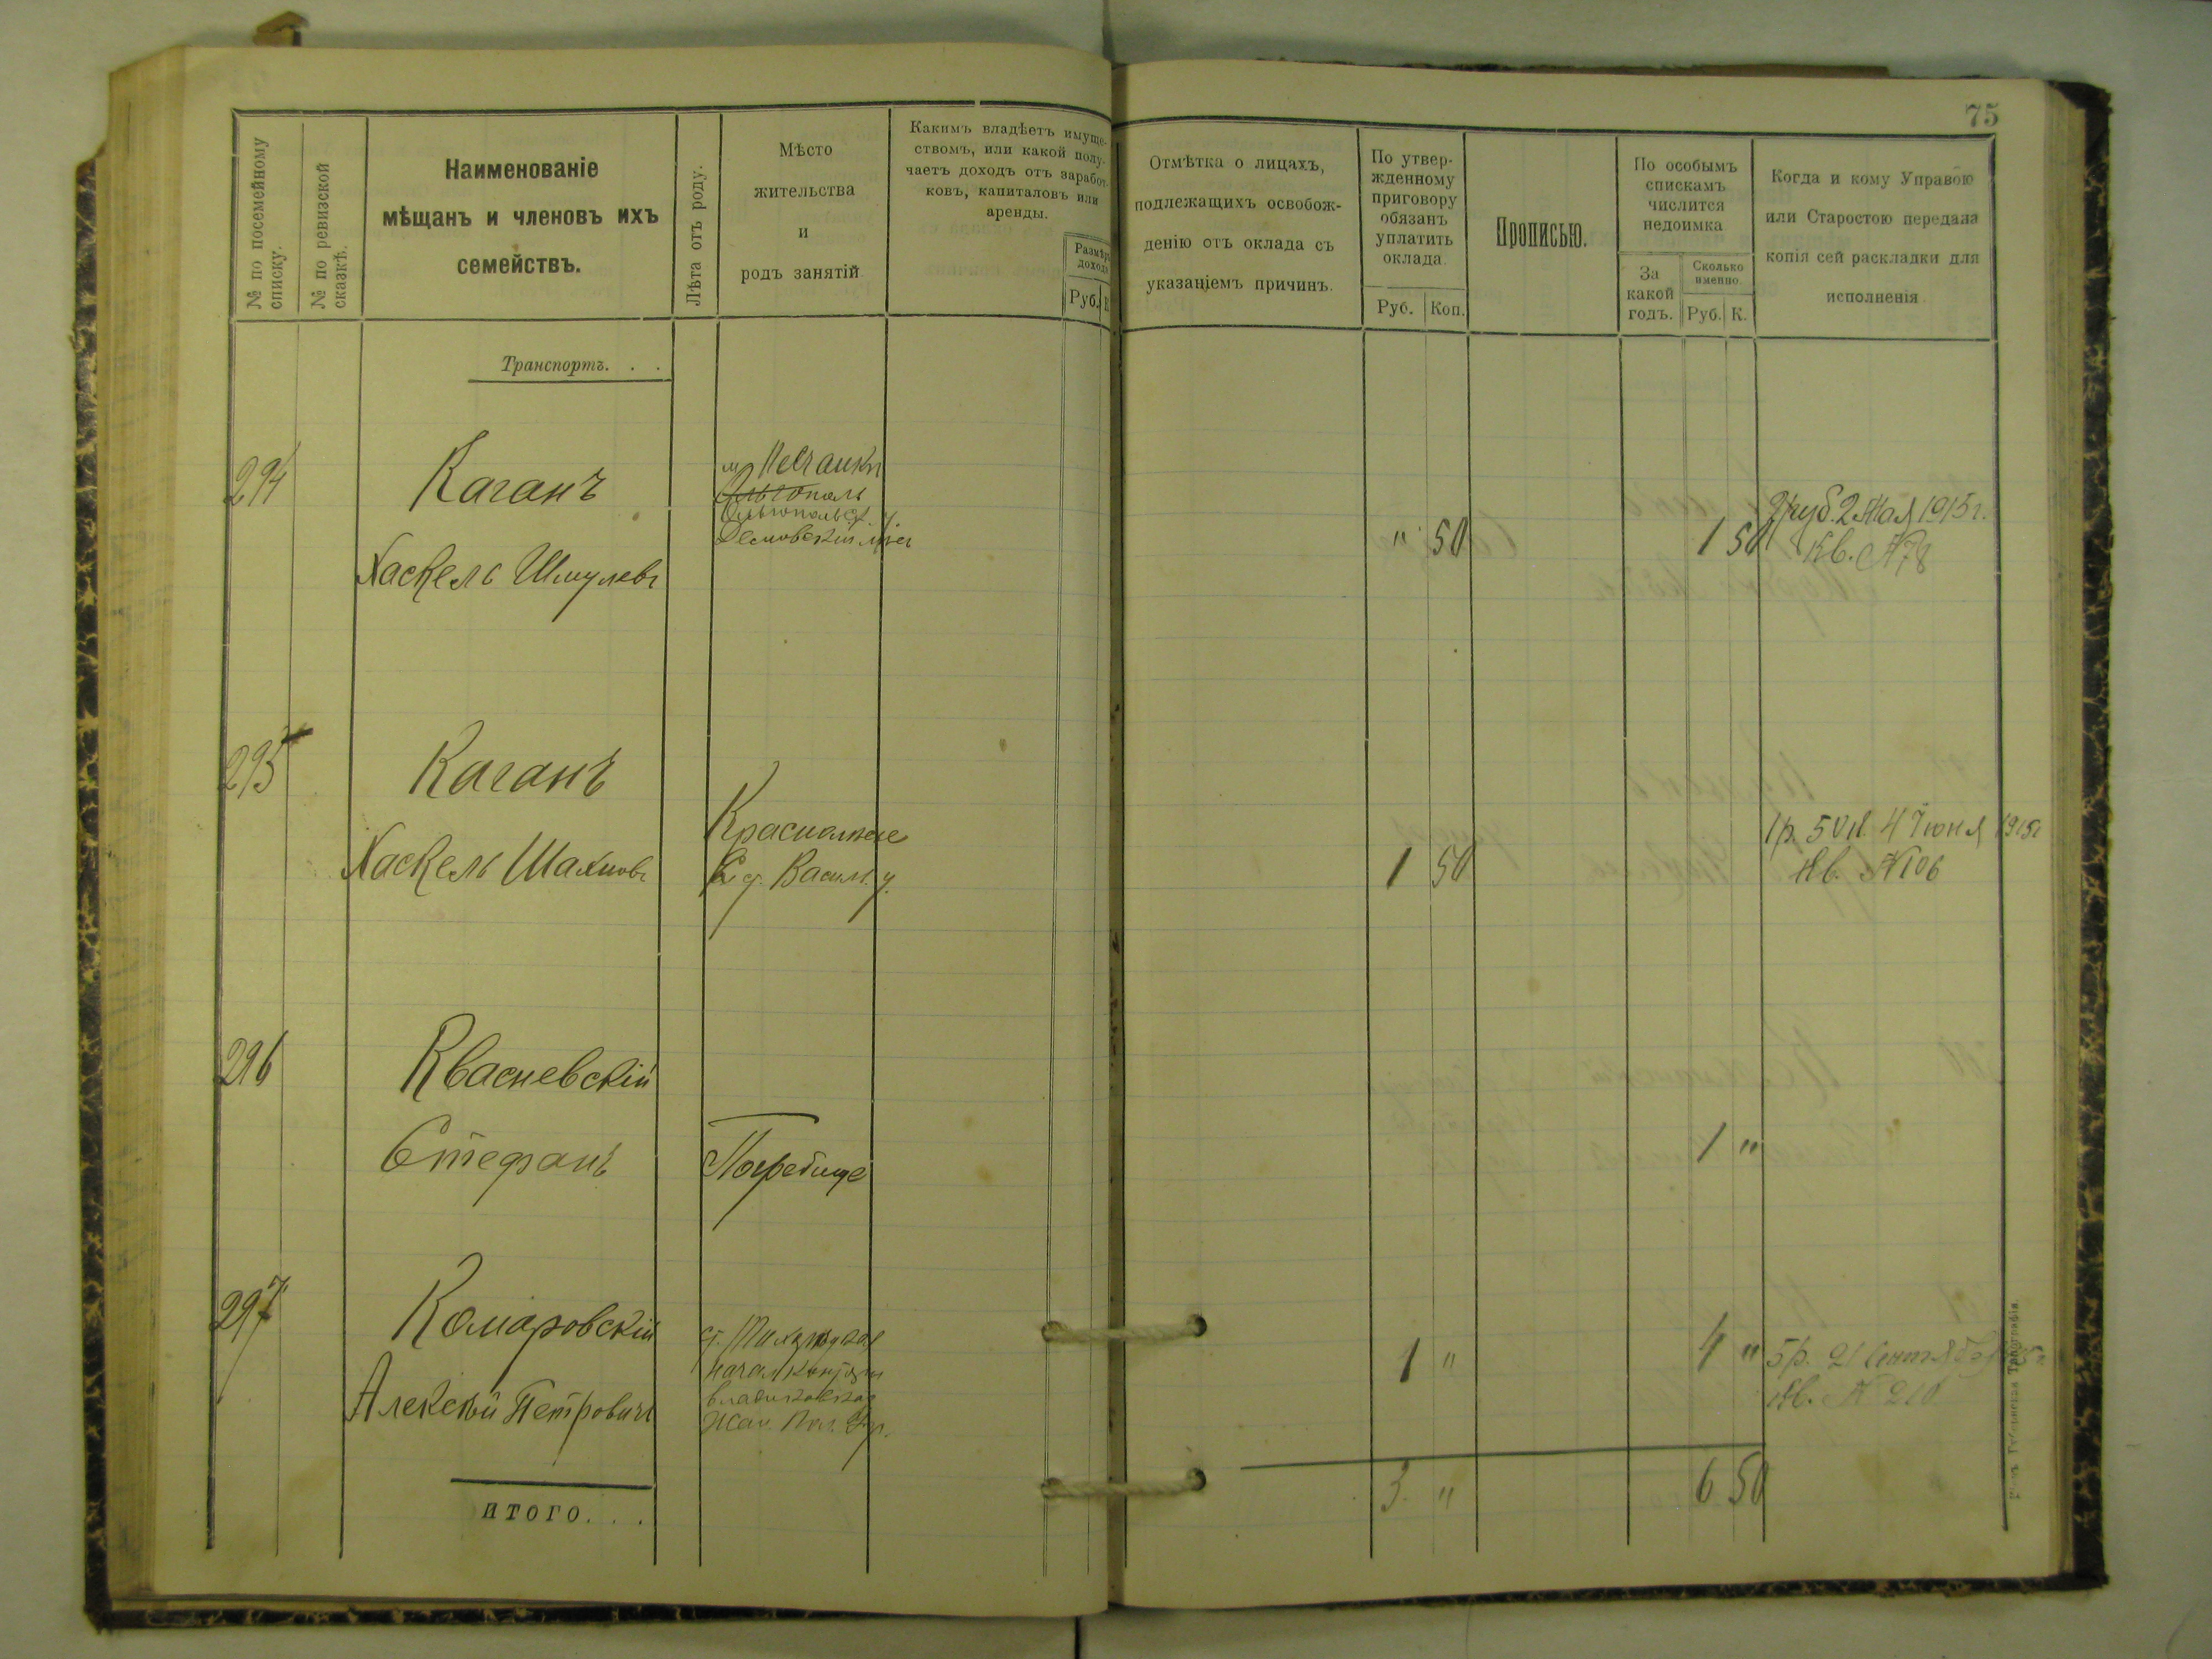 75
№ по посемейному списку.
№ по ревизской сказкѣ.
Наименованіе
мѣщанъ и членовъ ихъ
семействъ.
Лѣта отъ роду.
Мѣсто
жительства
и
родъ занятій
Какимъ владѣетъ имуще-
ствомъ, или какой полу-
чаетъ доходъ отъ заработ-
ковъ, капиталовъ или
аренды.
Размѣръ
дохода
Руб.
Отмѣтка о лицахъ,
подлежащихъ освобож-
денію отъ оклада съ
указаніемъ причинъ.
По утвер-
жденному
приговору
обязанъ
уплатить
оклада
Руб. Коп.
Прописью.
По особымъ
спискамъ
числится
недоимка
За
какой
годъ.
Сколько
именно.
Руб. К.
Когда и кому Управою
или Старостою передана
копія сей раскладки для
исполненія
Транспортъ. . .
294 Каганъ
м. Песчанки
Ольгополь
Ольгопольск. у.
Хаскель Шмулевъ
" 50 1 50
2 Мая 1915 г.
Кв. № 78
295 Каганъ
Хаскель Шахновъ
Васил. у.
1 50
1 р. 50 к. 4 Іюня 1915 г.
Кв. № 106
296 Квасневскій
Стефанъ
Погребище
1 "
297 Комаровскій
Алексѣй Петровичъ
1 " 4 "
5 р. 21 Сентября
Кв. № 210
ИТОГО. . .
3. " 6 50
Типографія.